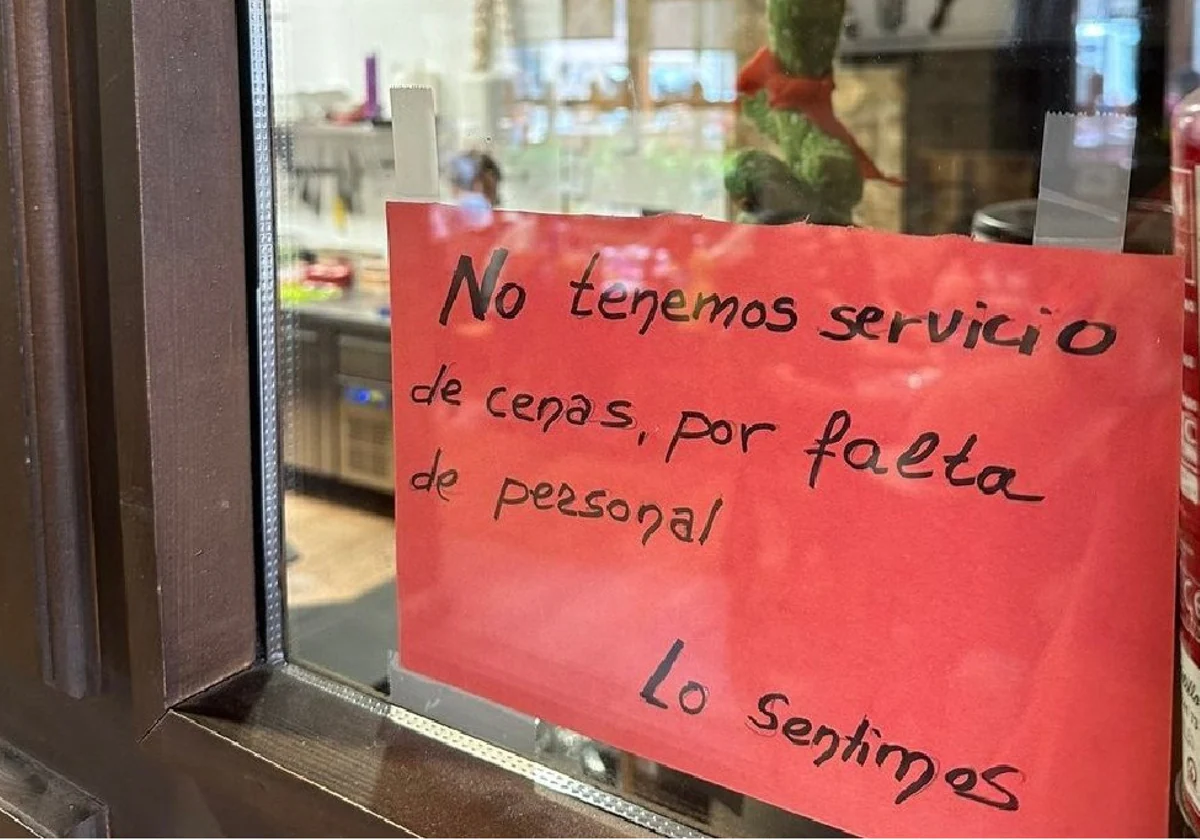 No tenemos servicio
de cenas, por falta
de personal
Lo Sentimos